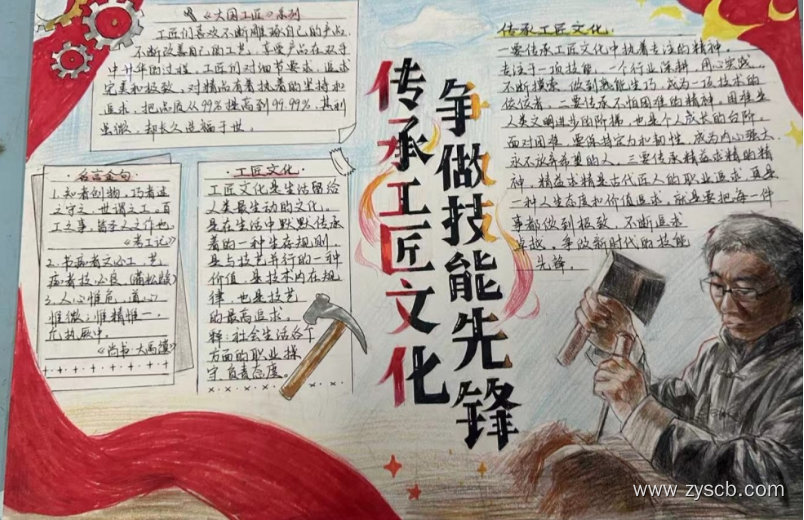 《大国工匠》系列
工匠们喜欢不断雕琢自己的产品，
不断改善自己的工艺，享受产品在双手
中升华的过程，工匠们对细节要求，追求
完美和极致，对精品有着执着的坚持和
追求，把品质从99%提高到99.99%，其利
虽微，却长久造福于世。
名言金句
1.知者创物，巧者述
之守之，世谓之工，百
工之事，皆圣人之作也。
《考工记》
2.书痴者文必工，艺
痴者技必良（蒲松龄）
3.人心惟危，道心
惟微；惟精惟一，
允执厥中。
《尚书·大禹谟》
工匠文化
工匠文化是生活留给
人类最生动的文化。
是在生活中默默传承
着的一种生存规则，
是与技艺并行的一种
价值，是技术内在规
律，也是技艺
的最高追求。
释：社会生活各个
方面的职业操
守、负责态度。
传承工匠文化
争做技能先锋
传承工匠文化：
一要传承工匠文化中执着专注的精神。
专注于一项技能，一个行业深耕，用心实践，
不断摸索，做到熟能生巧，成为一项技术的
佼佼者。二要传承不怕困难的精神。困难是
人类文明进步的阶梯，也是个人成长的台阶。
面对困难，要保持定力和韧性，成为内心强大、
永不放弃希望的人。三要传承精益求精的精
神，精益求精是古代匠人的职业追求，更是
一种人生态度和价值追求，就是要把每一件
事都做到极致，不断追求
卓越，争做新时代的技能
先锋。
www.zyscb.com